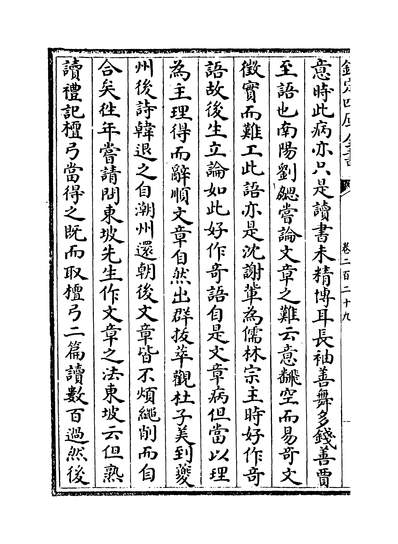 欽定四庫全書
卷二百二十九
意時此病亦只是讀書未精博耳長袖善舞多錢善賈
至語也南陽劉勰嘗論文章之難云意飜空而易奇文
徵實而難工此語亦是沈謝輩為儒林宗主時好作奇
語故後生立論如此好作奇語自是文章病但當以理
為主理得而辭順文章自然出群拔萃觀杜子美到夔
州後詩韓退之自潮州還朝後文章皆不煩繩削而自
合矣徃年嘗請問東坡先生作文章之法東坡云但熟
讀禮記檀弓當得之既而取檀弓二篇讀數百過然後